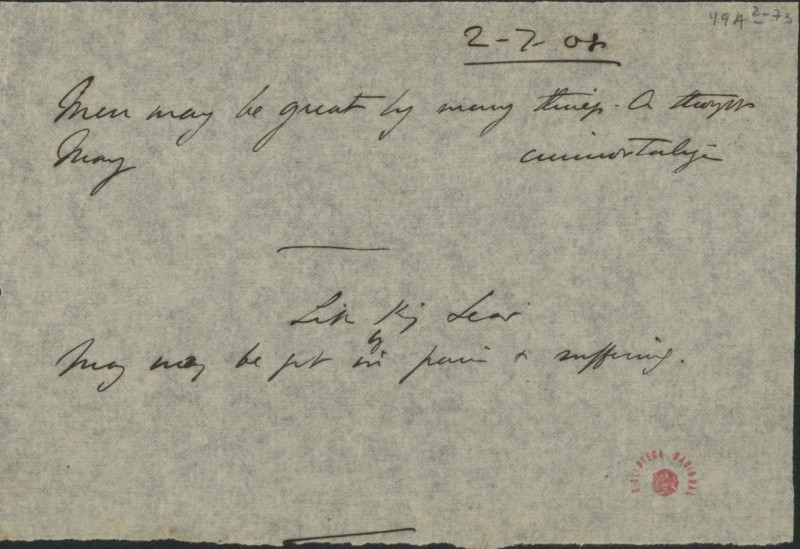 49A 2-73
2-7-08
Men may be great by many things. A
May immortalize
Like King Lear
by
May may be in pain & suffering.
BIBLIOTECA NACIONAL